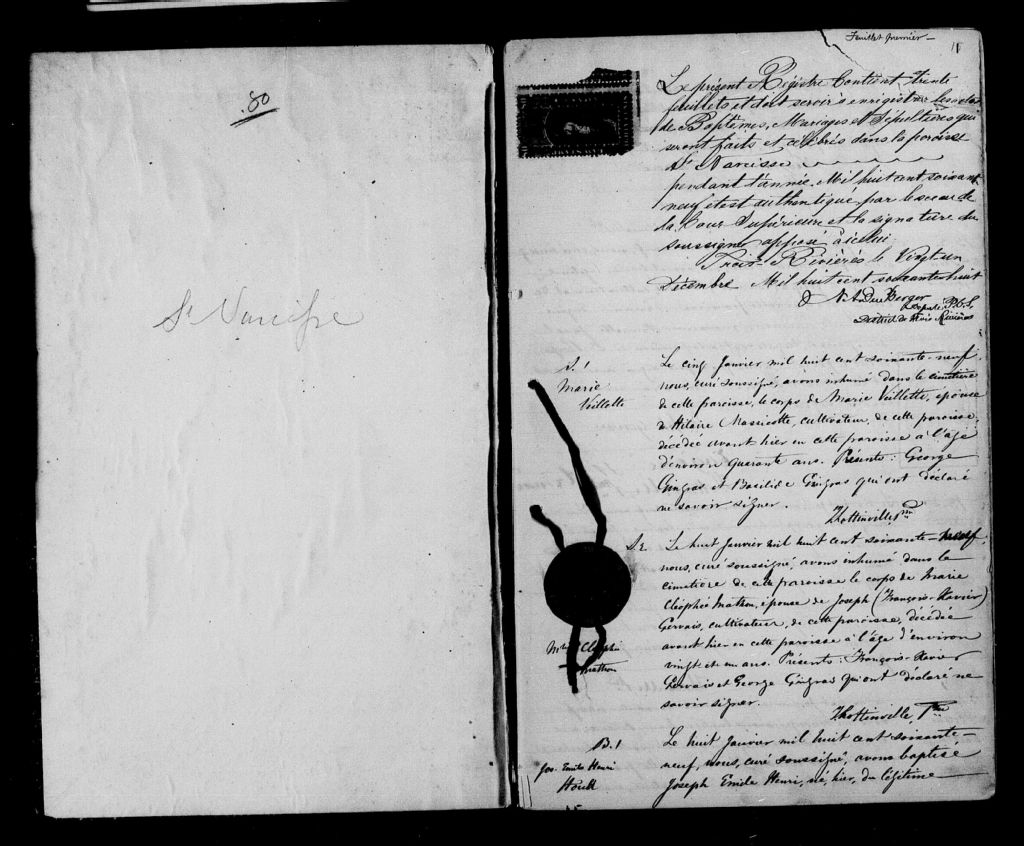 .80
St Narcisse
Feuillet premier
Le présent Régistre Contient trente
feuillets et doit servir à enrégistrer les actes
de Baptêmes, Mariages et Sépultures qui
seront faits et célébrés dans la paroisse
St Narcisse
pendant l'année Mil huit cent soixante
neuf et est authentiqué par le sceau de
la Cour Supérieure et la signature du
soussigné apposé à icelui
Trois-Rivières le Vingt un
Décembre Mil huit cent soixante huit
Député P.C.S.
District de Trois Rivières
S. 1
Marie
Veillette
Le cinq Janvier mil huit cent soixante-neuf,
nous, curé soussigné, avons inhumé dans le cimetière
de cette paroisse, le corps de Marie Veillette, épouse
d Hilaire Massicotte, cultivateur, de cette paroisse,
décédée avant hier en cette paroisse à l'âge
d'environ quarante ans. Présents: George
Gingras et Basilide Gingras qui ont déclaré
ne savoir signer.
JHottinville Ptre
S. 2.
Marie Cléophée
Mathon
Le huit Janvier mil huit cent soixante-neuf,
nous, curé soussigné, avons inhumé dans le
cimetière de cette paroisse le corps de Marie
Cléophée Mathon, épouse de Joseph (François-Xavier)
Gervais, cultivateur, de cette paroisse, décédée
avant hier en cette paroisse à l'âge d'environ
vingt et un ans. Présents: François-Xavier
Gervais et George Gingras qui ont déclaré ne
savoir signer.
JHottinville, Ptre
B. 1
Jos. Emile Henri
Houle
Le huit Janvier mil huit cent soixante-
neuf, nous, curé soussigné, avons baptisé
Joseph Emile Henri, né, hier, du légitime